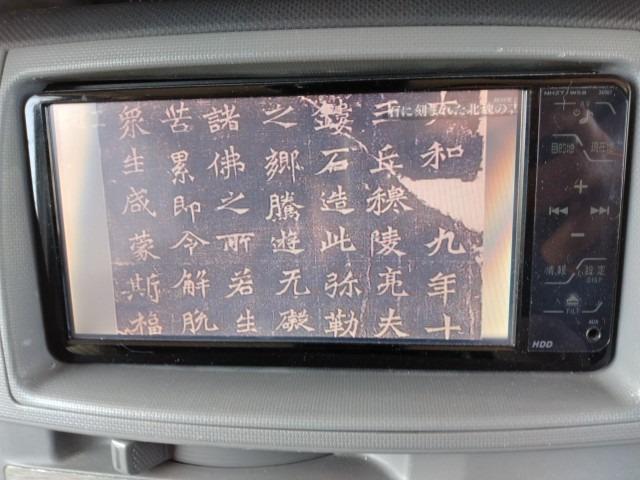 に刻まれた北魏の
和 九年十
王丘穆陵亮夫
鏤石造此弥勒
之鄉騰遊无礙
諸佛之所若生
苦累即令解脱
衆生咸蒙斯福
NHZT-W58
AV
目的地 現在地
+
−
情報 設定
DISP
TILT
AUX
HDD